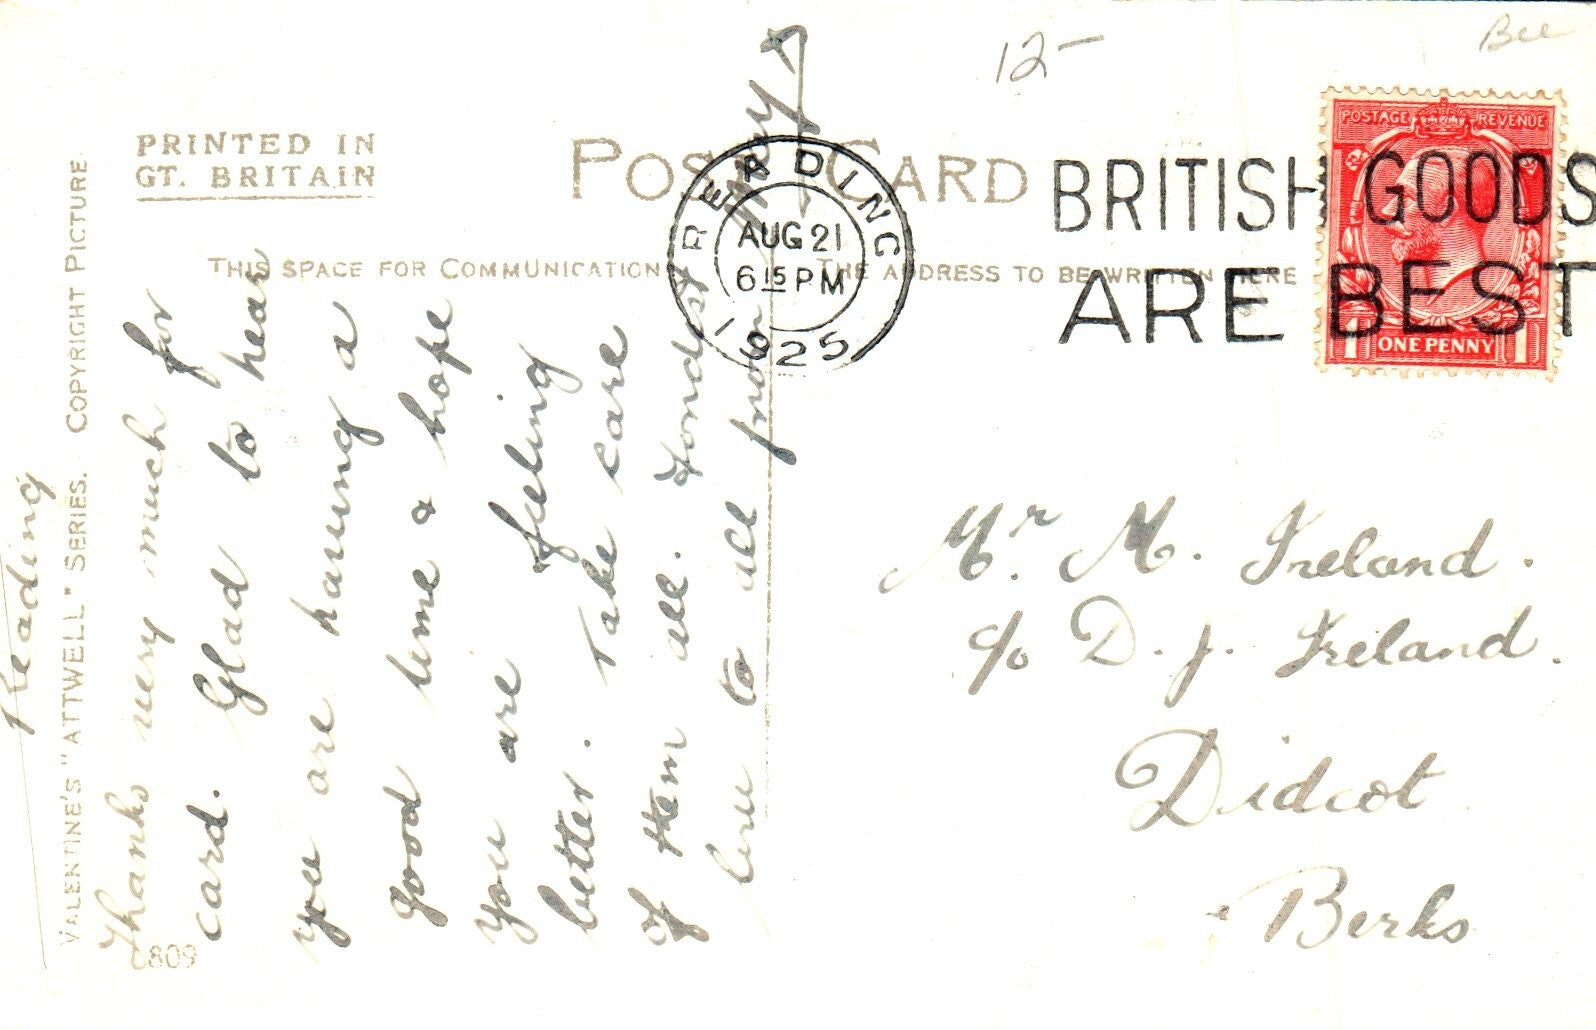 12-
Bee
PRINTED IN
GT. BRITAIN
POST CARD
THIS SPACE FOR COMMUNICATION
THE ADDRESS TO BE WRITTEN HERE
READING
AUG 21
6 15 PM
1925
BRITISH GOODS
ARE BEST
POSTAGE REVENUE
1 ONE PENNY 1
VALENTINE'S "ATTWELL" SERIES. COPYRIGHT PICTURE
Reading
Thanks very much for
card. Glad to hear
you are having a
good time & hope
you are feeling
better. Take care
of them all. Fondest
love to all from
Mary X
809
Mr. M. Ireland.
c/o D. J. Ireland.
Didcot
Berks